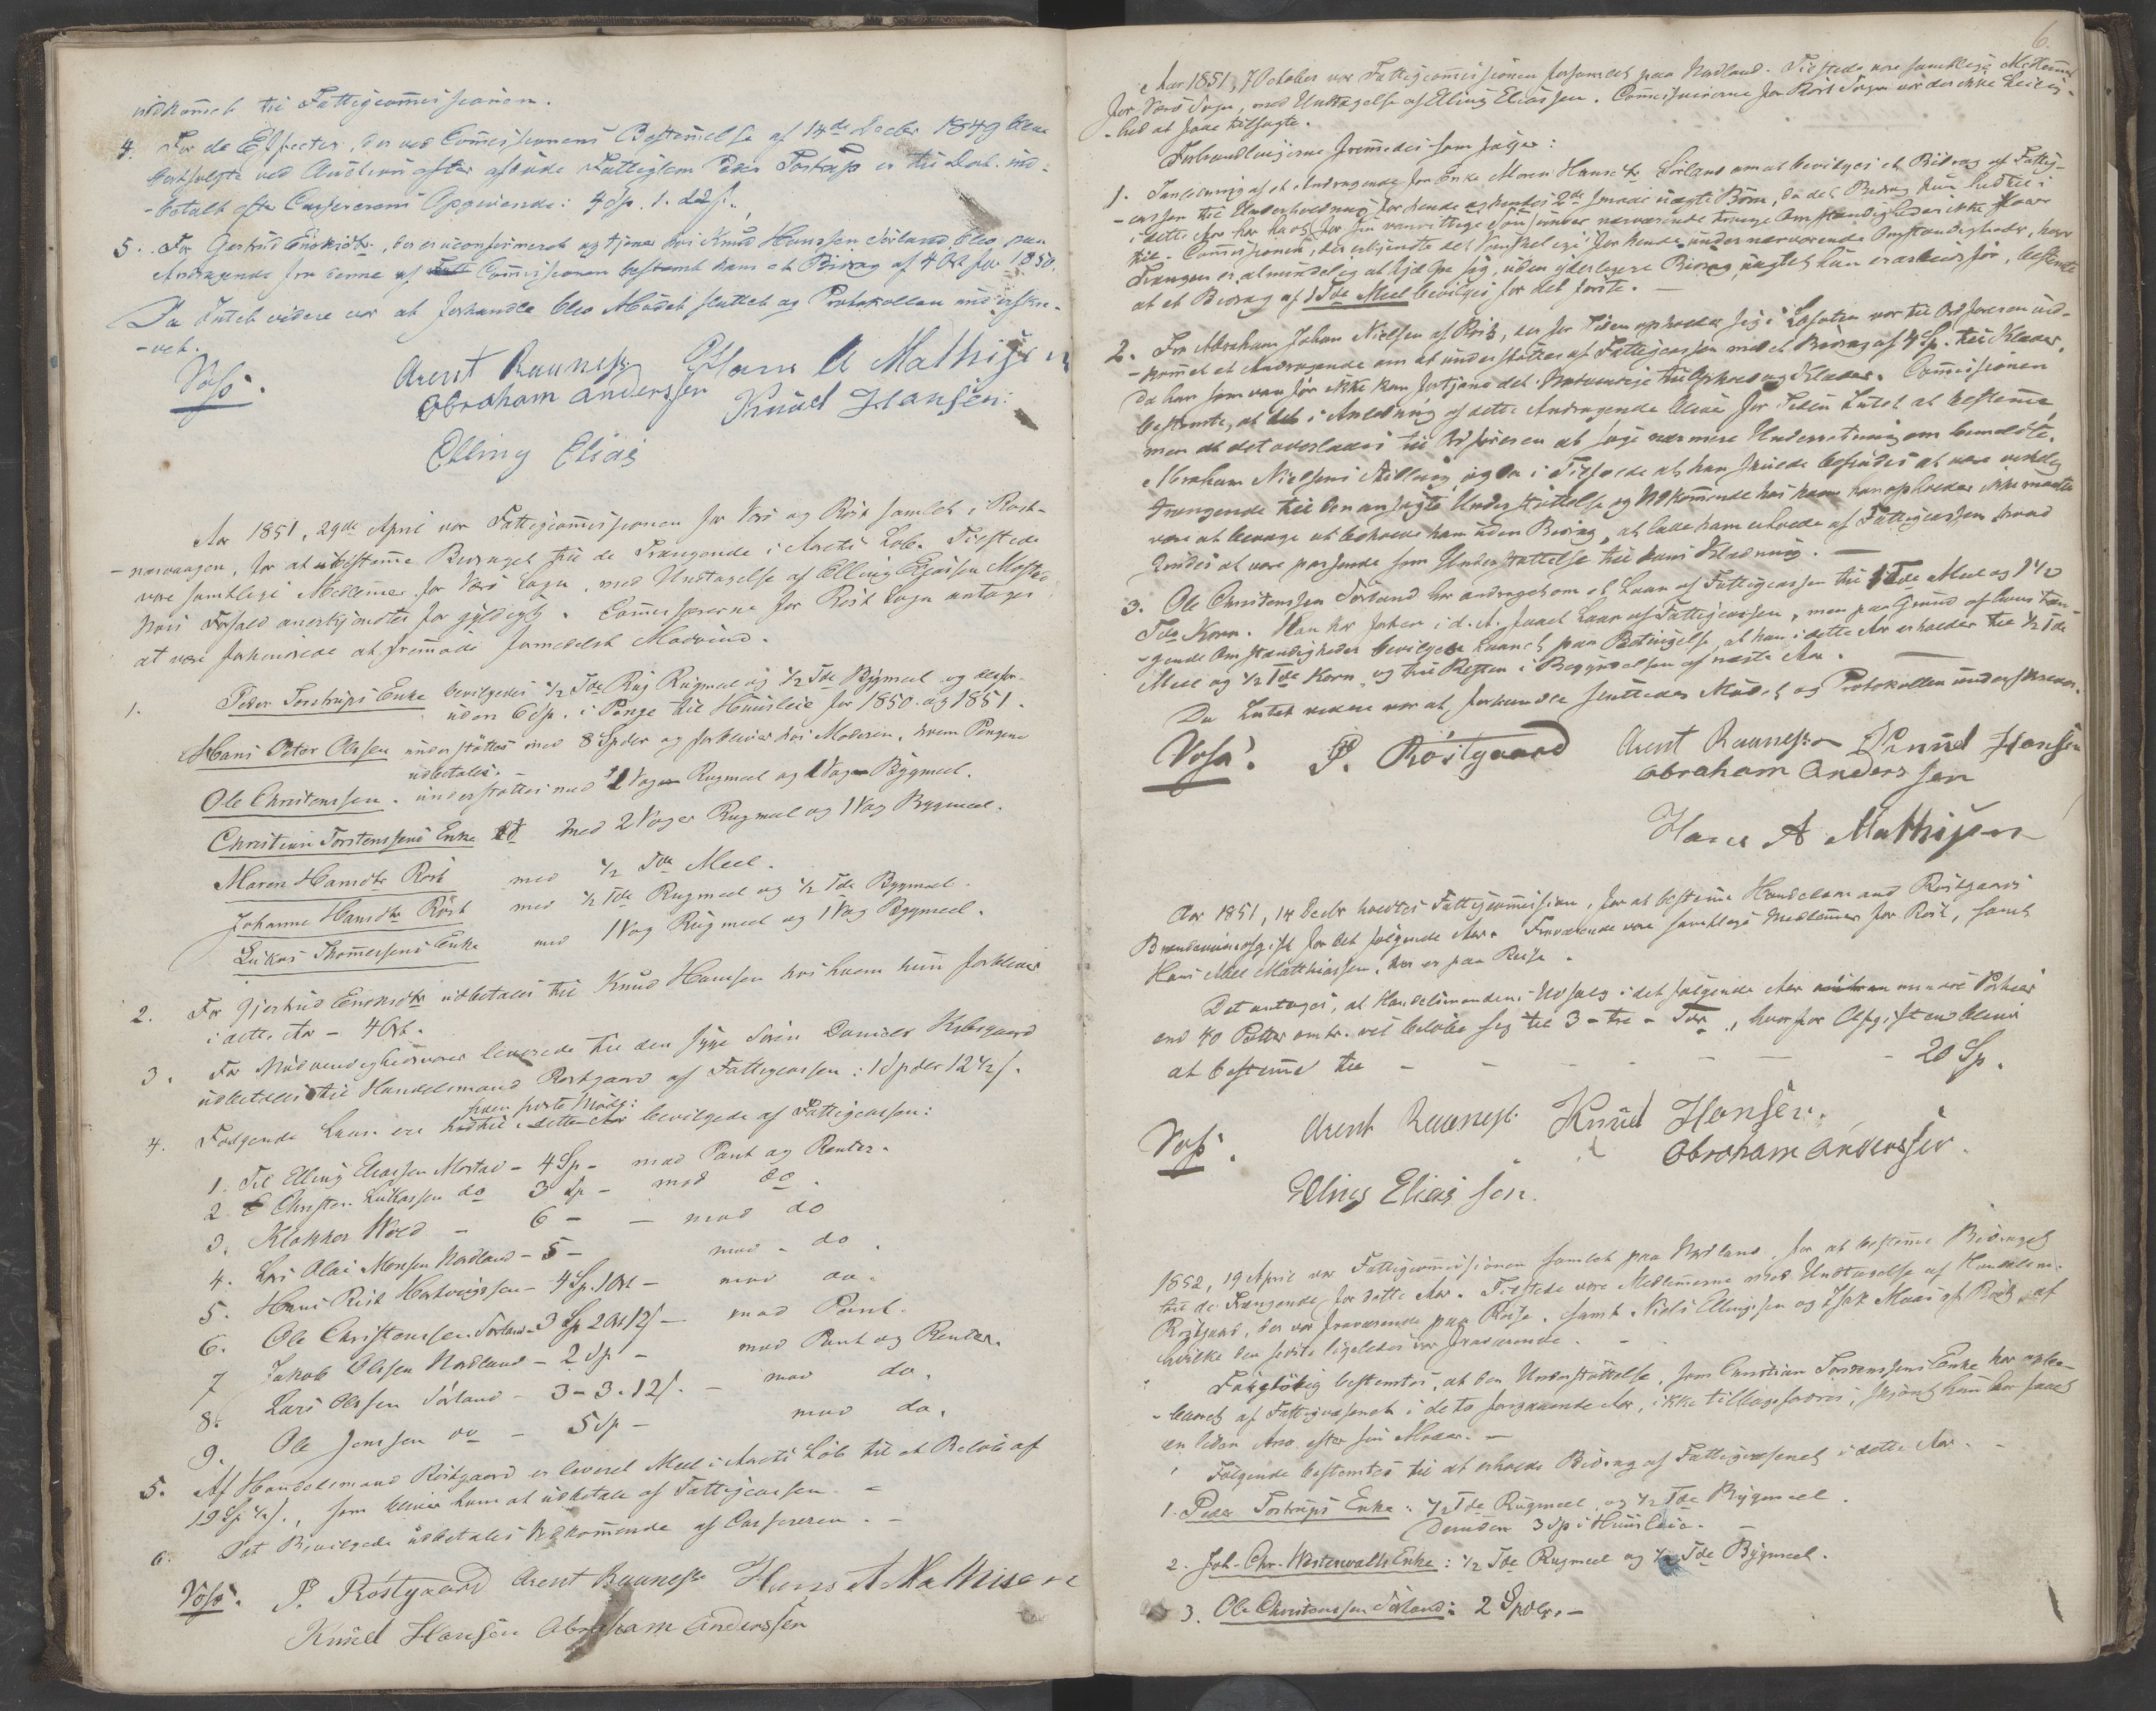 indkommet til Fattigcommissionen.
4. For de Effecter, der ved Commissionens Bestemmelse af 14de Decbr 1849 bleve
bortsolgte ved Auction efter afdøde Fattiglem Peder Tostrup er til Dato ind-
-betalt efter Cassererens Opgivende: 4 Sp. 1.
5. For Gjertrud Enokidtr, der er uconfirmeret og tjener hos Knud Hanssen Sørland, blev paa
Andragende fra denne af Commissionen bestemt ham et Bidrag af 4 Ort for 1850.
Da Intet videre var at forhandle blev Mødet sluttet og Protokollen underskre-
-vet.
Voss. Arent Raanesse Hans A Mathisen
Abraham Anderssen Knud Hansen
Elling Elias
Aar 1851, 29de April var Fattigcommissionen for Værø og Røst samlet i Røst-
-næsvaagen, for at bestemme Bidraget til de Trængende i Aarets Løb. Tilstede
vare samtlige Medlemmer for Værø Sogn, med Undtagelse af Elling Eliassen Mostad
hvis Forfald anerkjendtes for gyldigt. Commissærerne for Røst Sogn antages
at være forhindrede at fremmøde formedelst Modvind.
1. Peder Tostrups Enke bevilgedes 1/2 Tde Rugmeel og 1/2 Tde Bygmeel og desfor-
uden 6 Sp. i Penge til Huusleie for 1850 og 1851.
Hans Peter Olsen understøttes med 8 Spdlr og forbliver hos Moderen, hvem Pengene
udbetales.
Ole Christenssen understøttes med 1 Vog Rugmeel og 1 Vog Bygmeel.
Christian Torstenssens Enke med 2 Voger Rugmeel og 1 Vog Bygmeel.
Maren Hansdtr Røst med 1/2 Tde Meel.
Johanne Hansdtr Røst med 1/2 Tde Rugmeel og 1/2 Tde Bygmeel.
Lukas Thommesens Enke med 1 Vog Rugmeel og 1 Vog Bygmeel.
2. For Gjertrud Enokidtr udbetales til Knud Hansen hos hvem hun forbliver
i dette Aar - 4 Ort.
3. For Nødvendighedsvarer leverede til den syge Søren Daniels Kirkegaard
udbetales til Handelsmand Røstgaard af Fattigcassen: 1 Spdlr 12 1/2 s.
4. Følgende Laan ere siden sidste Møde bevilgede af Fattigcassen:
1. Til Elling Eliassen Mostad - 4 Sp - mod Pant og Renter.
2. Christen Lukassen do 3 Sp - mod do.
3. Klokker Wold - 6 - - mod do
4. Lars Olai Monsen Nordland - 5 - mod - do.
5. Hans Røst Hartvigssen - 4 Sp. 1 Ort - mod do.
6. Ole Christenssen Sørland - 3 Sp 2 Ort 12 s - mod Pant.
7 Jakob Olssen Nordland - 2 Sp - mod Pant og Renter.
8. Lars Olssen Sørland - 3 - 3 - 12 s. - mod do.
9. Ole Jenssen do - 5 Sp - mod do.
5. Af Handelsmand Røstgaard er leveret Meel i Aarets Løb til et Beløb af
19 Sp, som bliver ham at udbetale af Fattigcassen. -
6. Det Bevilgede udbetales Vedkommende af Casserer en. -
Voss. P. Røstgaard Arent Raanesse Hans A Mathisen
Knud Hansen Abraham Anderssen
6.
Aar 1851, 7 October var Fattigcommissionen forsamlet paa Nordland. Tilstede vare samtlige Medlemmer
for Værø Sogn, med Undtagelse af Elling Eliassen. Commissærerne for Røst Sogn var der ikke Leilig-
-hed at faae tilsagte.
Forhandlingerne fremmedes som følger:
1. I Anledning af et Andragende fra Enke Maren Hansdtr Sørland om at bevilges et Bidrag af Fattig-
-cassen til Underholdning for hende og hendes 2de smaae uægte Børn, da det Bidrag hun hidtil i
i dette Aar har havt for sin vanvittige Søn under nærværende trange Omstændigheder ikke slaaer
til. Commissionen, der erkjendte det vanskelige for hende under nærværende Omstændigheder, hvor
Trangen er almindelig at hjælpe sig, uden yderligere Bidrag, uagtet hun er arbeidsfør, bestemte
at et Bidrag af 1 Tde Meel bevilges for det første. -
2. Fra Abraham Johan Nielsen af Røst, der for Tiden opholder sig i Lofoten var til Ordføreren ind-
-kommet et Andragende om at understøttes af Fattigcassen med et Bidrag af 4 Sp. til Klæder,
da han som vanfør ikke kan fortjene det Nødvendige til Ophold og Klæder. Commissionen
bestemte, at i Anledning af dette Andragende bliver for Tiden Intet at bestemme,
men at det overlades til Ordføreren at søge nærmere Underretning om bemeldte
Abraham Nielsens Stilling, og da i Tilfælde at han skulde befindes at være virkelig
trængende til den ansøgte Understøttelse og Vedkommende hos hvem han opholder ikke maatte
være at bevæge at beholde ham uden Bidrag, at lade ham erholde af Fattigcassen hvad
findes at være passende som Understøttelse til hans Klædning. -
3. Ole Christenssen Sørland har andraget om et Laan af Fattigcassen til 1 Tde Meel og 1 1/2
Tde Korn. Han har før i d. A. faaet Laan af Fattigcassen, men paa Grund af hans træn-
-gende Omstændigheder bevilges Laanet paa Betingelse, at han i dette Aar erholder til 1/2 Tde
Meel og 1/2 Tde Korn og til Resten i Begyndelsen af næste Aar. -
Da Intet videre var at forhandle sluttedes Mødet og Protokollen underskreven.
Voss. P. Røstgaard Arent Raanesse Knud Hansen
Abraham Anderssen
Hans A Mathisen
Aar 1851, 14 Decbr holdtes Fattigcommission, for at bestemme Handelsmand Røstgaards
Brændeviinsafgift for det følgende Aar. Fraværende vare samtlige Medlemmer for Røst, samt
Hans Abel Matthiassen, der er paa Reise.
Det antages, at Handelsmandens Udsalg i det følgende Aar i mindre Partier
end 40 Potter omtr. vil beløbe sig til 3 - tre - Tdr, hvorfor Afgiften bliver
at bestemme til - - - - - 20 Sp.
Voss. Arent Raanesse Knud Hansen.
Abraham Anderssen.
Elling Elias sen.
1852, 19 April var Fattigcommissionen samlet paa Nordland, for at bestemme Bidraget
til de Trængende for dette Aar. Tilstede vare Medlemmerne med Undtagelse af Handelsm.
Røstgaard, der var fraværende paa Reise, samt Niels Ellingsen og Isak Moas af Røst, af
hvilke den sidste ligeledes var fraværende. -
bestemtes, at den Understøttelse, som Christian Torstenssens Enke har opbe-
-baaret af Fattigvæsenet i de to foregaaende Aar, ikke tilbagefordres, skjønt hun har faaet
en liden Arv efter sin Moder. -
Følgende bestemtes til at erholde Bidrag af Fattigvæsenet i dette Aar. -
1. Peder Tostrups Enke: 1/2 Tde Rugmeel og 1/2 Tde Bygmeel.
Desuden 3 Sp i Huusleie. -
2. Joh. Chr. Westerwalds Enke: 1/2 Tde Rugmeel og 1/2 Tde Bygmeel.
3. Ole Christenssen Sørland: 2 Spdlr. -